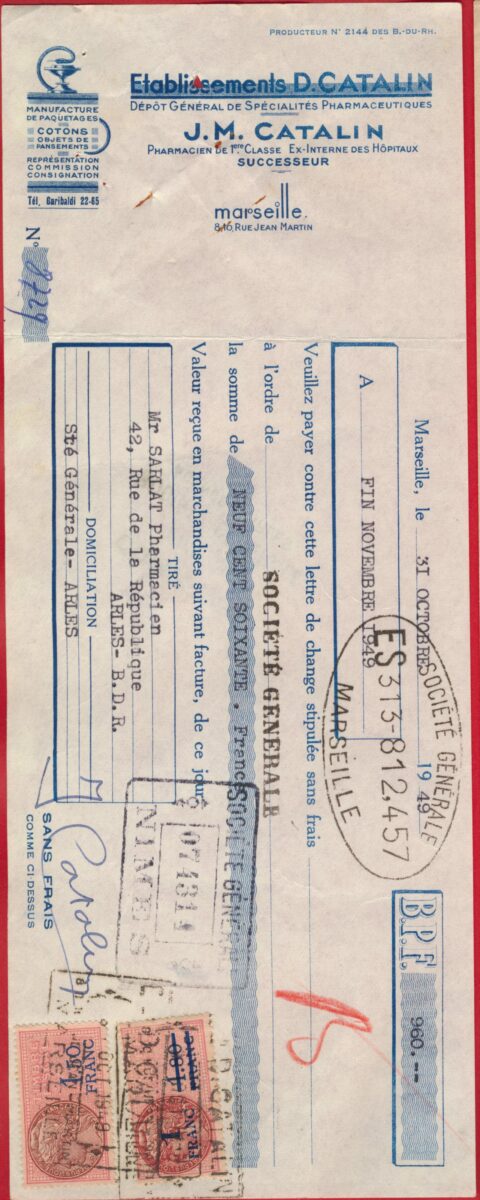 PRODUCTEUR N° 2144 DES B.-DU-RH.
Etablissements D. CATALIN
DÉPÔT GÉNÉRAL DE SPÉCIALITÉS PHARMACEUTIQUES
J. M. CATALIN
PHARMACIEN DE 1ère CLASSE EX-INTERNE DES HÔPITAUX
SUCCESSEUR
marseille.
8-10, RUE JEAN MARTIN
MANUFACTURE
DE PAQUETAGES
COTONS
OBJETS DE
PANSEMENTS
REPRÉSENTATION
COMMISSION
CONSIGNATION
Tél. Garibaldi 22-65
N° 8729
Marseille, le 31 OCTOBRE 1949
B.P.F. 960.--
A FIN NOVEMBRE 1949
Veuillez payer contre cette lettre de change stipulée sans frais
à l'ordre de SOCIÉTÉ GENERALE
la somme de NEUF CENT SOIXANTE . Francs
Valeur reçue en marchandises suivant facture, de ce jour
TIRÉ
Mr SARLAT Pharmacien
42, Rue de la République
ARLES- B.D.R.
DOMICILIATION
Sté Générale- ARLES
SANS FRAIS
COMME CI-DESSUS
Catalin
SOCIÉTÉ GÉNÉRALE
ES 313-812,457
MARSEILLE
SOCIÉTÉ GÉNÉRALE
074314
NIMES
1.50
FRANC
1
FRANC
D. CATALIN